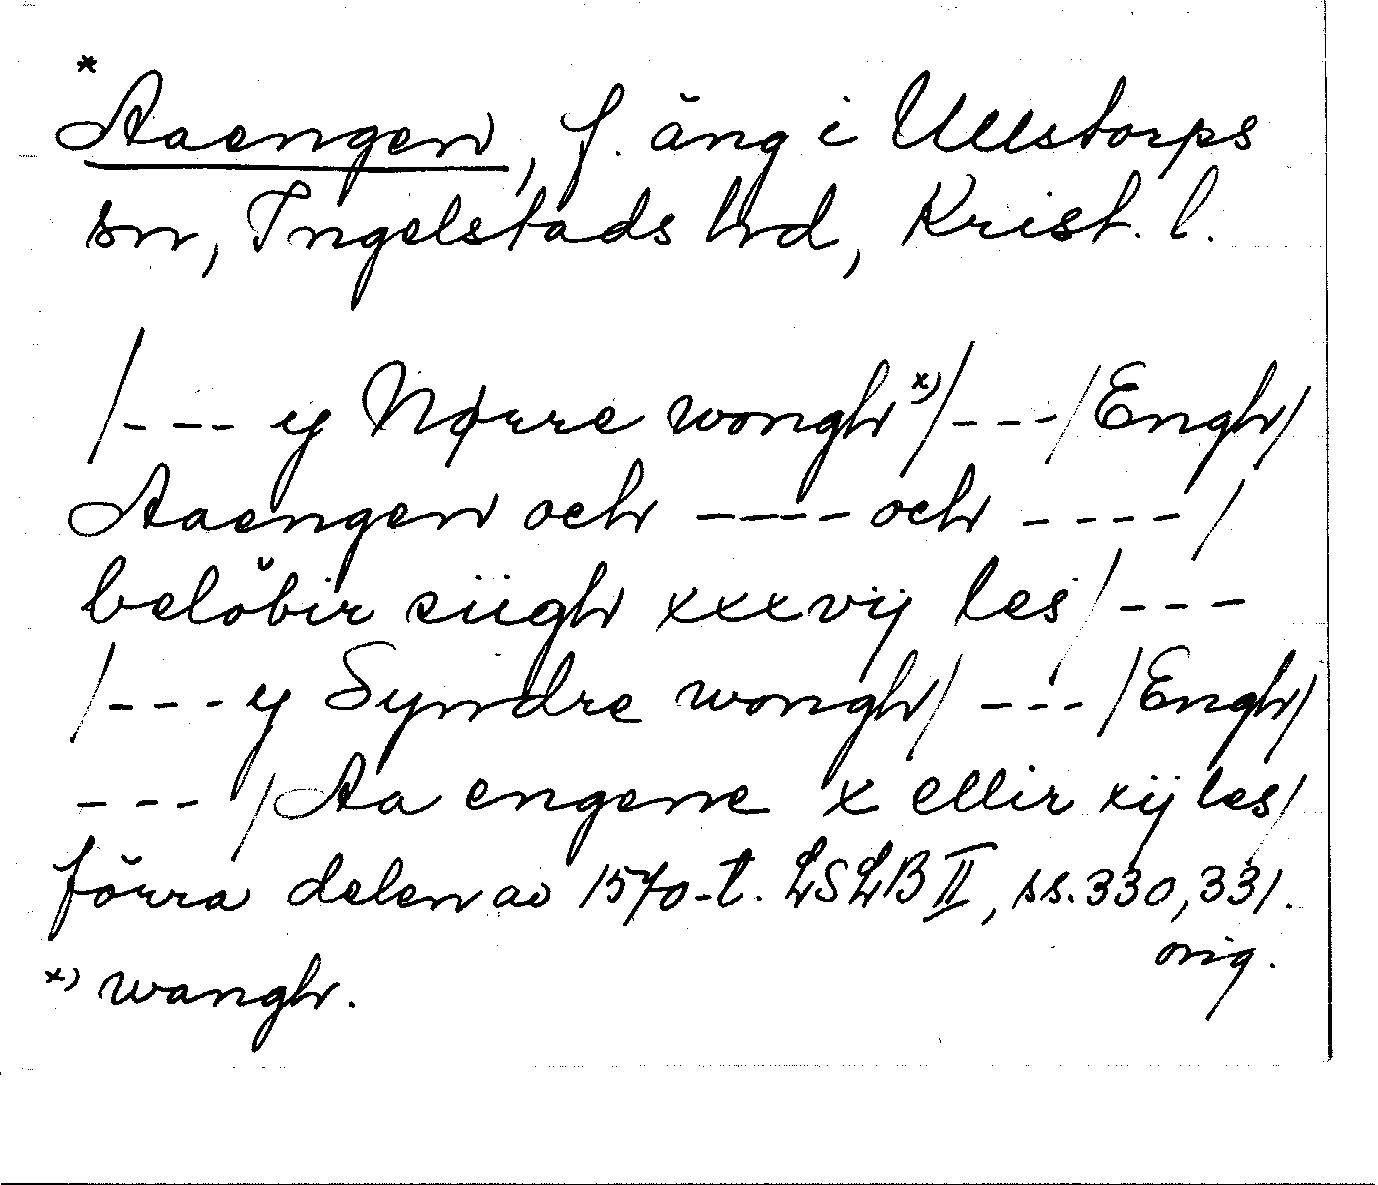 *
Aaengen, f. äng i Ullstorps
sn, Ingelstads hrd, Krist. l.
/--- y Nørre wongh x)/---/Engh/
Aaengen och ---- och ----/
belöbir siigh xxxvij les/---
/--- y Syndre wongh/ ---/Engh/
---/Aa engene x ellir xij les/
förra delen av 1570-t. LSLB II, ss. 330, 331.
orig.
x) wangh.